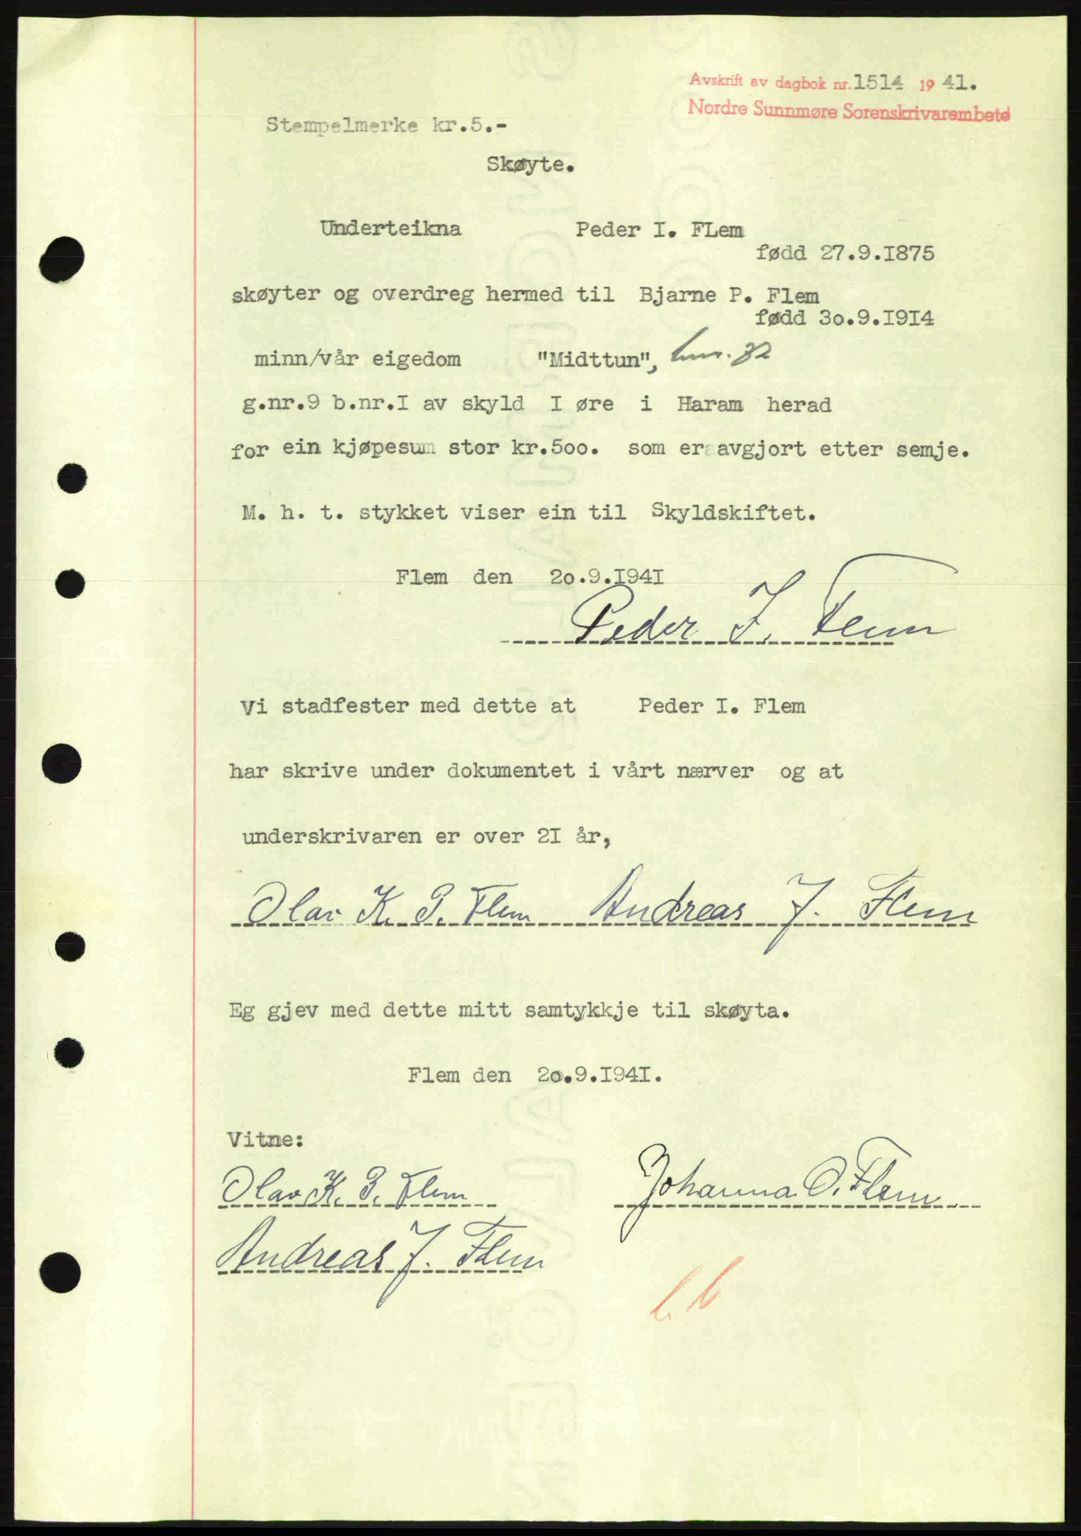 Avskrift av dagbok nr. 1514 1941.
Nordre Sunnmøre Sorenskrivarembete
Stempelmerke kr.5.-
Skøyte.
Underteikna Peder I. FLem
fødd 27.9.I875
skøyter og overdreg hermed til Bjarne P. Flem
fødd 3o.9.I9I4
minn/vår eigedom "Midttun", bnr. 32
g.nr.9 b.nr.I av skyld I øre i Haram herad
for ein kjøpesum stor kr.5oo. som er avgjort etter semje.
M. h. t. stykket viser ein til Skyldskiftet.
Flem den 2o.9.I94I
Peder I. Flem
Vi stadfester med dette at Peder I. Flem
har skrive under dokumentet i vårt nærver og at
underskrivaren er over 2I år,
Olav K. P. Flem Andreas J. Flem
Eg gjev med dette mitt samtykkje til skøyta.
Flem den 2o.9.I94I.
Vitne:
Olav K. P. Flem Johanna O. Flem
Andreas J. Flem